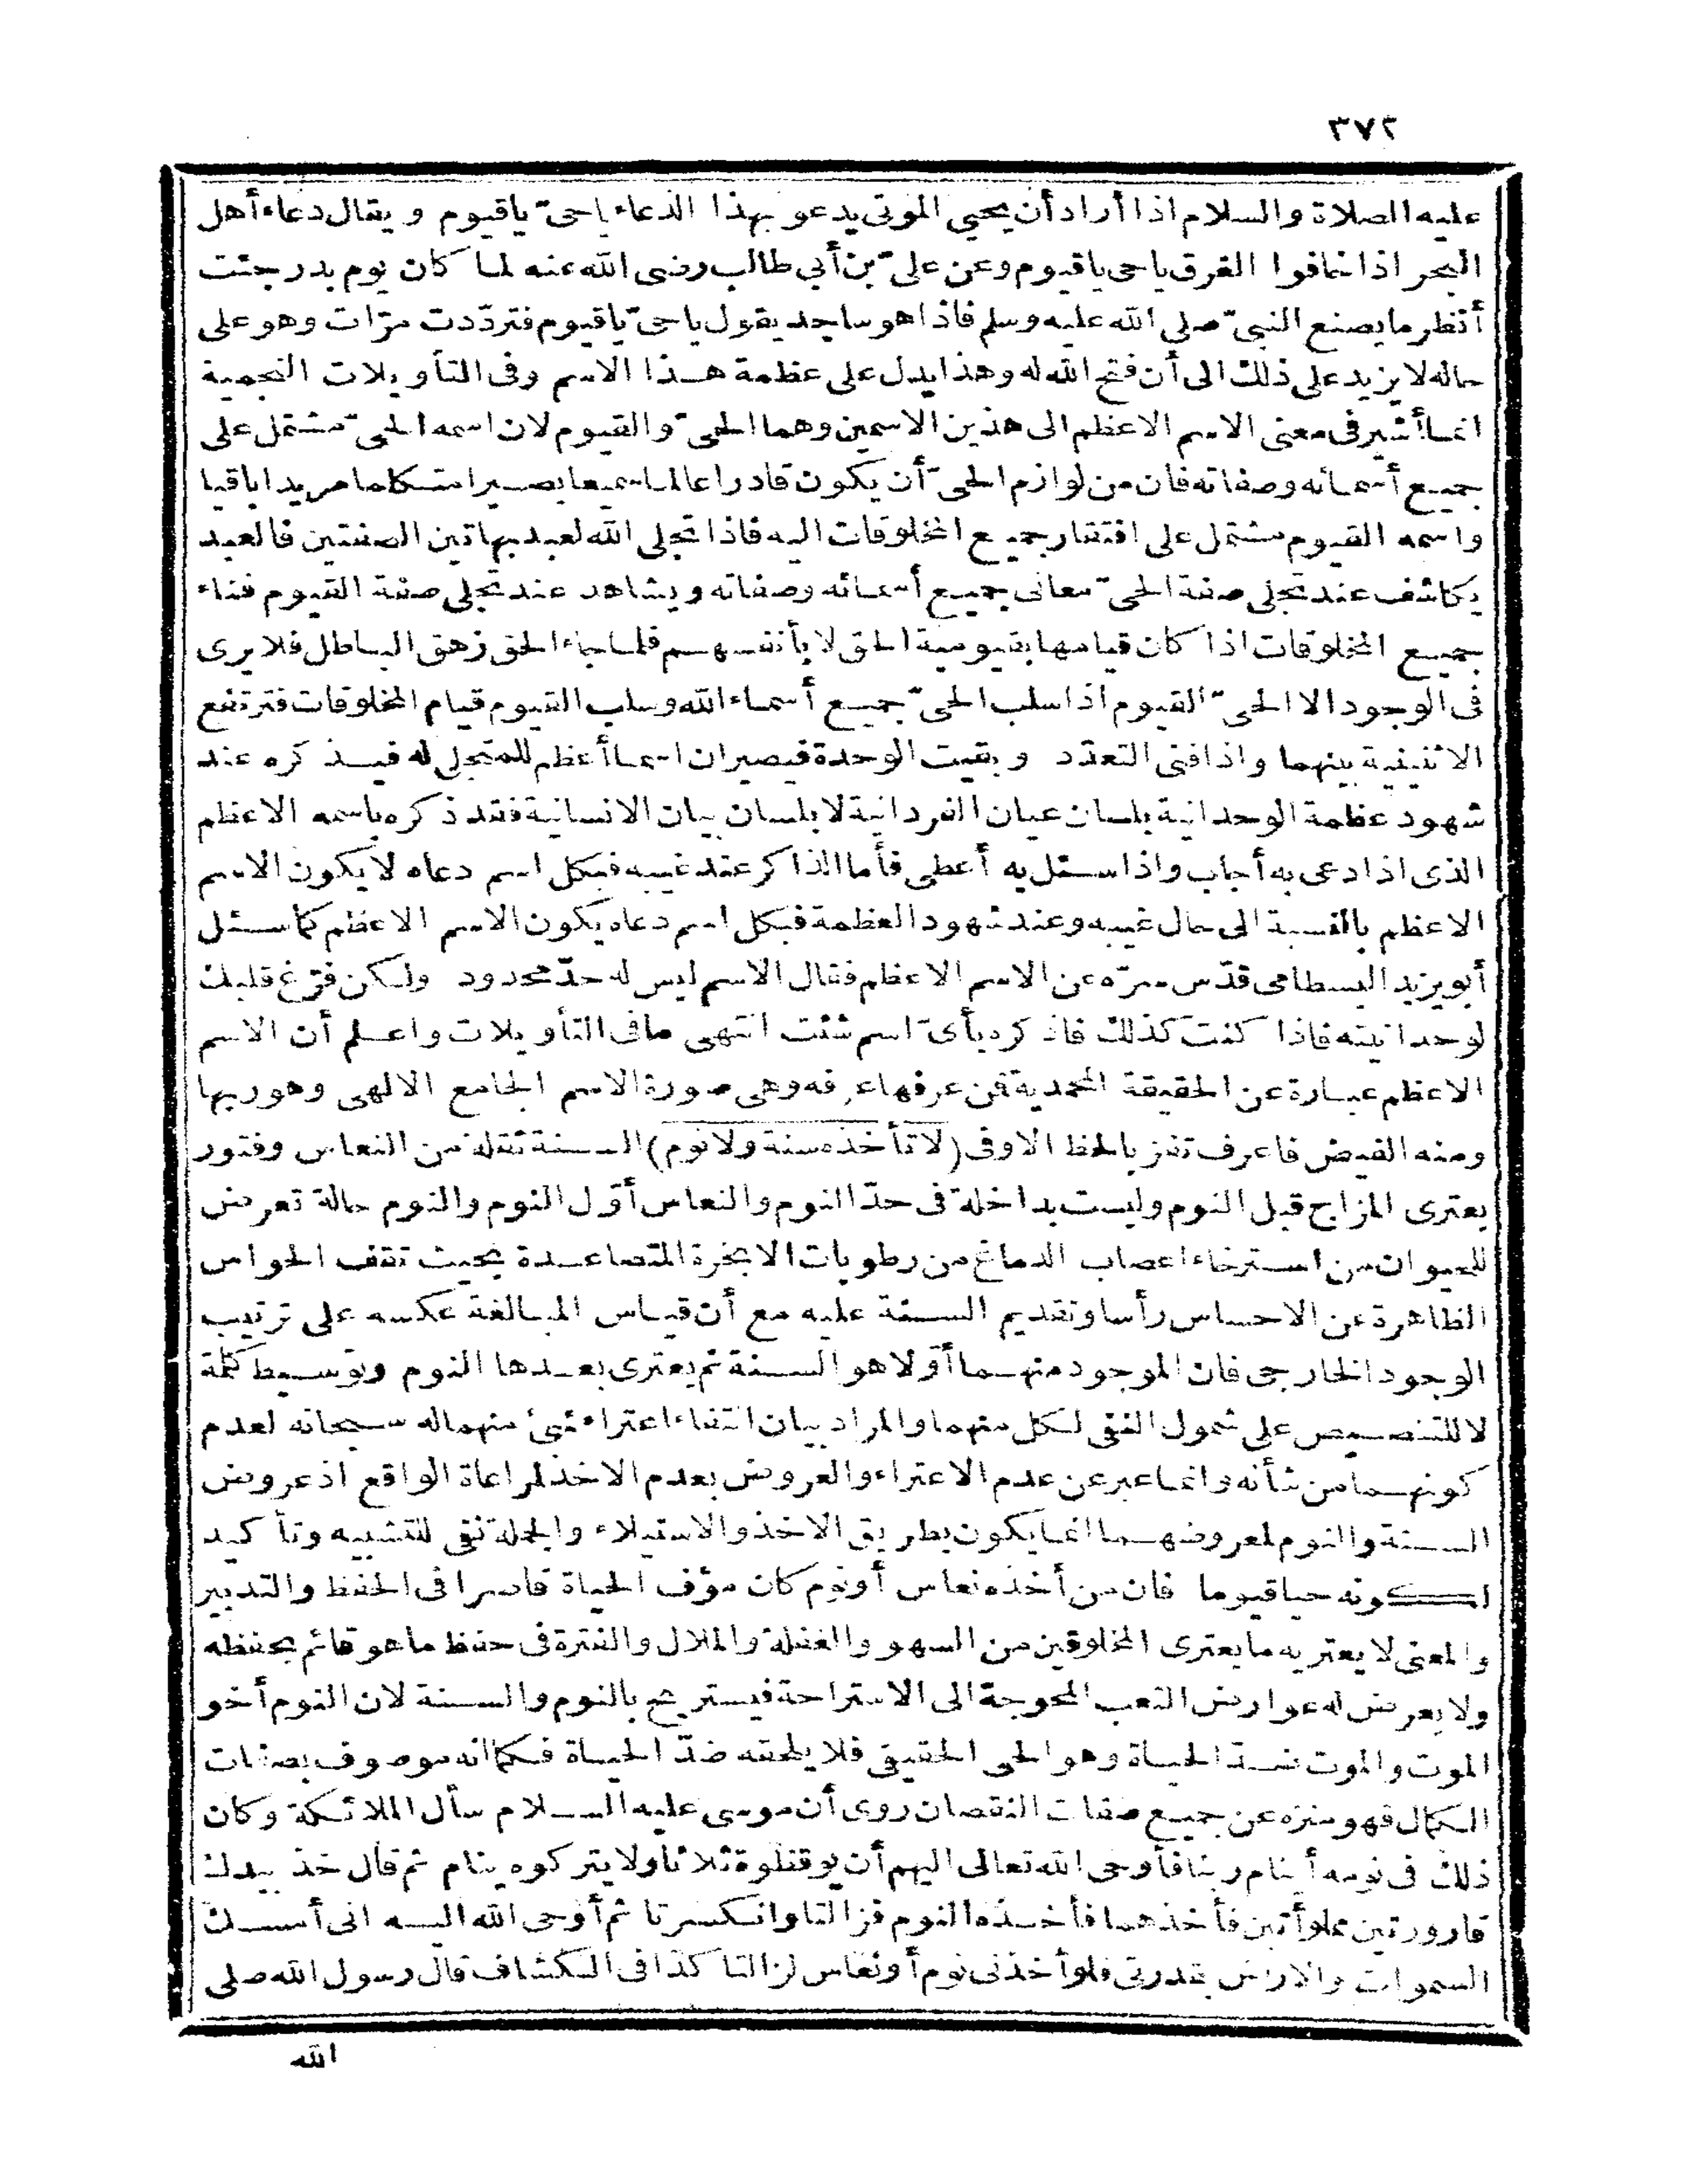 ٣٧٢
عليه الصلاة والسلام اذا أراد أن يحيى الموتى يدعو بهذا الدعاء يا حىّ يا قيوم ويقال دعاء أهل
البحر اذا خافوا الغرق يا حى يا قيوم وعن علىّ بن أبى طالب رضى الله عنه لما كان يوم بدر جئت
أنظر ما يصنع النبىّ صلى الله عليه وسلم فاذا هو ساجد يقول يا حىّ يا قيوم فتردّدت مرّات وهو على
حاله لا يزيد على ذلك الى أن فتح الله له وهذا يدل على عظمة هذا الاسم وفى التأويلات النجمية
انما أشير فى معنى الاسم الاعظم الى هذين الاسمين وهما الحىّ والقيوم لان اسمه الحىّ مشتمل على
جميع أسمائه وصفاته فان من لوازم الحىّ أن يكون قادرا عالما سميعا بصيرا متكلما مريدا باقيا
واسمه القيوم مشتمل على افتقار جميع المخلوقات اليه فاذا تجلى الله لعبد بهاتين الصفتين فالعبد
يكاشف عند تجلى صفة الحىّ معانى جميع أسمائه وصفاته ويشاهد عند تجلى صفة القيوم فناء
جميع المخلوقات اذا كان قيامها بقيومية الحق لا بأنفسهم فلما جاء الحق زهق الباطل فلا يرى
فى الوجود الا الحىّ القيوم اذا سلب الحىّ جميع أسماء الله وسلب القيوم قيام المخلوقات فترتفع
الاثنينية بينهما واذا فنى التعدّد وبقيت الوحدة فيصيران اسما أعظم للمتجلى له فيذكره عند
شهود عظمة الوحدانية بلسان عيان الفردانية لا بلسان بيان الانسانية فقد ذكره باسمه الاعظم
الذى اذا دعى به أجاب واذا سئل به أعطى فأما الذاكر عند غيبه فبكل اسم دعاه لا يكون الاسم
الاعظم بالنسبة الى حال غيبه وعند شهود العظمة فبكل اسم دعاه يكون الاسم الاعظم كما سئل
أبو يزيد البسطامى قدّس سرّه عن الاسم الاعظم فقال الاسم ليس له حدّ محدود ولكن فرّغ قلبك
لوحدانيته فاذا كنت كذلك فاذكره بأىّ اسم شئت انتهى ما فى التأويلات واعلم أن الاسم
الاعظم عبارة عن الحقيقة المحمدية فمن عرفها عرفه وهى صورة الاسم الجامع الالهى وهو ربها
ومنه الفيض فاعرف تفز بالحظ الاوفى (لا تأخذه سنة ولا نوم) السنة ثقلة من النعاس وفتور
يعترى المزاج قبل النوم وليست بداخلة فى حدّ النوم والنعاس أوّل النوم والنوم حالة تعرض
للحيوان من استرخاء اعصاب الدماغ من رطوبات الابخرة المتصاعدة بحيث تقف الحواس
الظاهرة عن الاحساس رأسا وتقديم السنة عليه مع أن قياس المبالغة عكسه على ترتيب
الوجود الخارجى فان الموجود منهما أوّلا هو السنة ثم يعترى بعدها النوم وتوسيط كلمة
لا للتنصيص على شمول النفى لكل منهما والمراد بيان انتفاء اعتراء شئ منهما له سبحانه لعدم
كونهما من شأنه وانما عبر عن عدم الاعتراء والعروض بعدم الاخذ لمراعاة الواقع اذ عروض
السنة والنوم لمعروضهما انما يكون بطريق الاخذ والاستيلاء والجملة نفى للتشبيه وتأكيد
لكونه حيا قيوما فان من أخذه نعاس أو نوم كان مؤف الحياة قاصرا فى الحفظ والتدبير
والمعنى لا يعتريه ما يعترى المخلوقين من السهو والغفلة والملال والفترة فى حفظ ما هو قائم بحفظه
ولا يعرض له عوارض التعب المحوجة الى الاستراحة فيستريح بالنوم والسنة لان النوم أخو
الموت والموت ضدّ الحياة وهو الحى الحقيقى فلا يلحقه ضدّ الحياة فكما انه موصوف بصفات
الكمال فهو منزه عن جميع صفات النقصان روى أن موسى عليه السلام سأل الملائكة وكان
ذلك فى نومه أينام ربنا فأوحى الله تعالى اليهم أن يوقظوه ثلاثا ولا يتركوه ينام ثم قال خذ بيدك
قارورتين مملوأتين فأخذهما فأخذه النوم فزالتا وانكسرتا ثم أوحى الله اليه انى أمسك
السموات والارض بقدرتى فلو أخذنى نوم أو نعاس لزالتا كذا فى الكشاف قال رسول الله صلى
الله